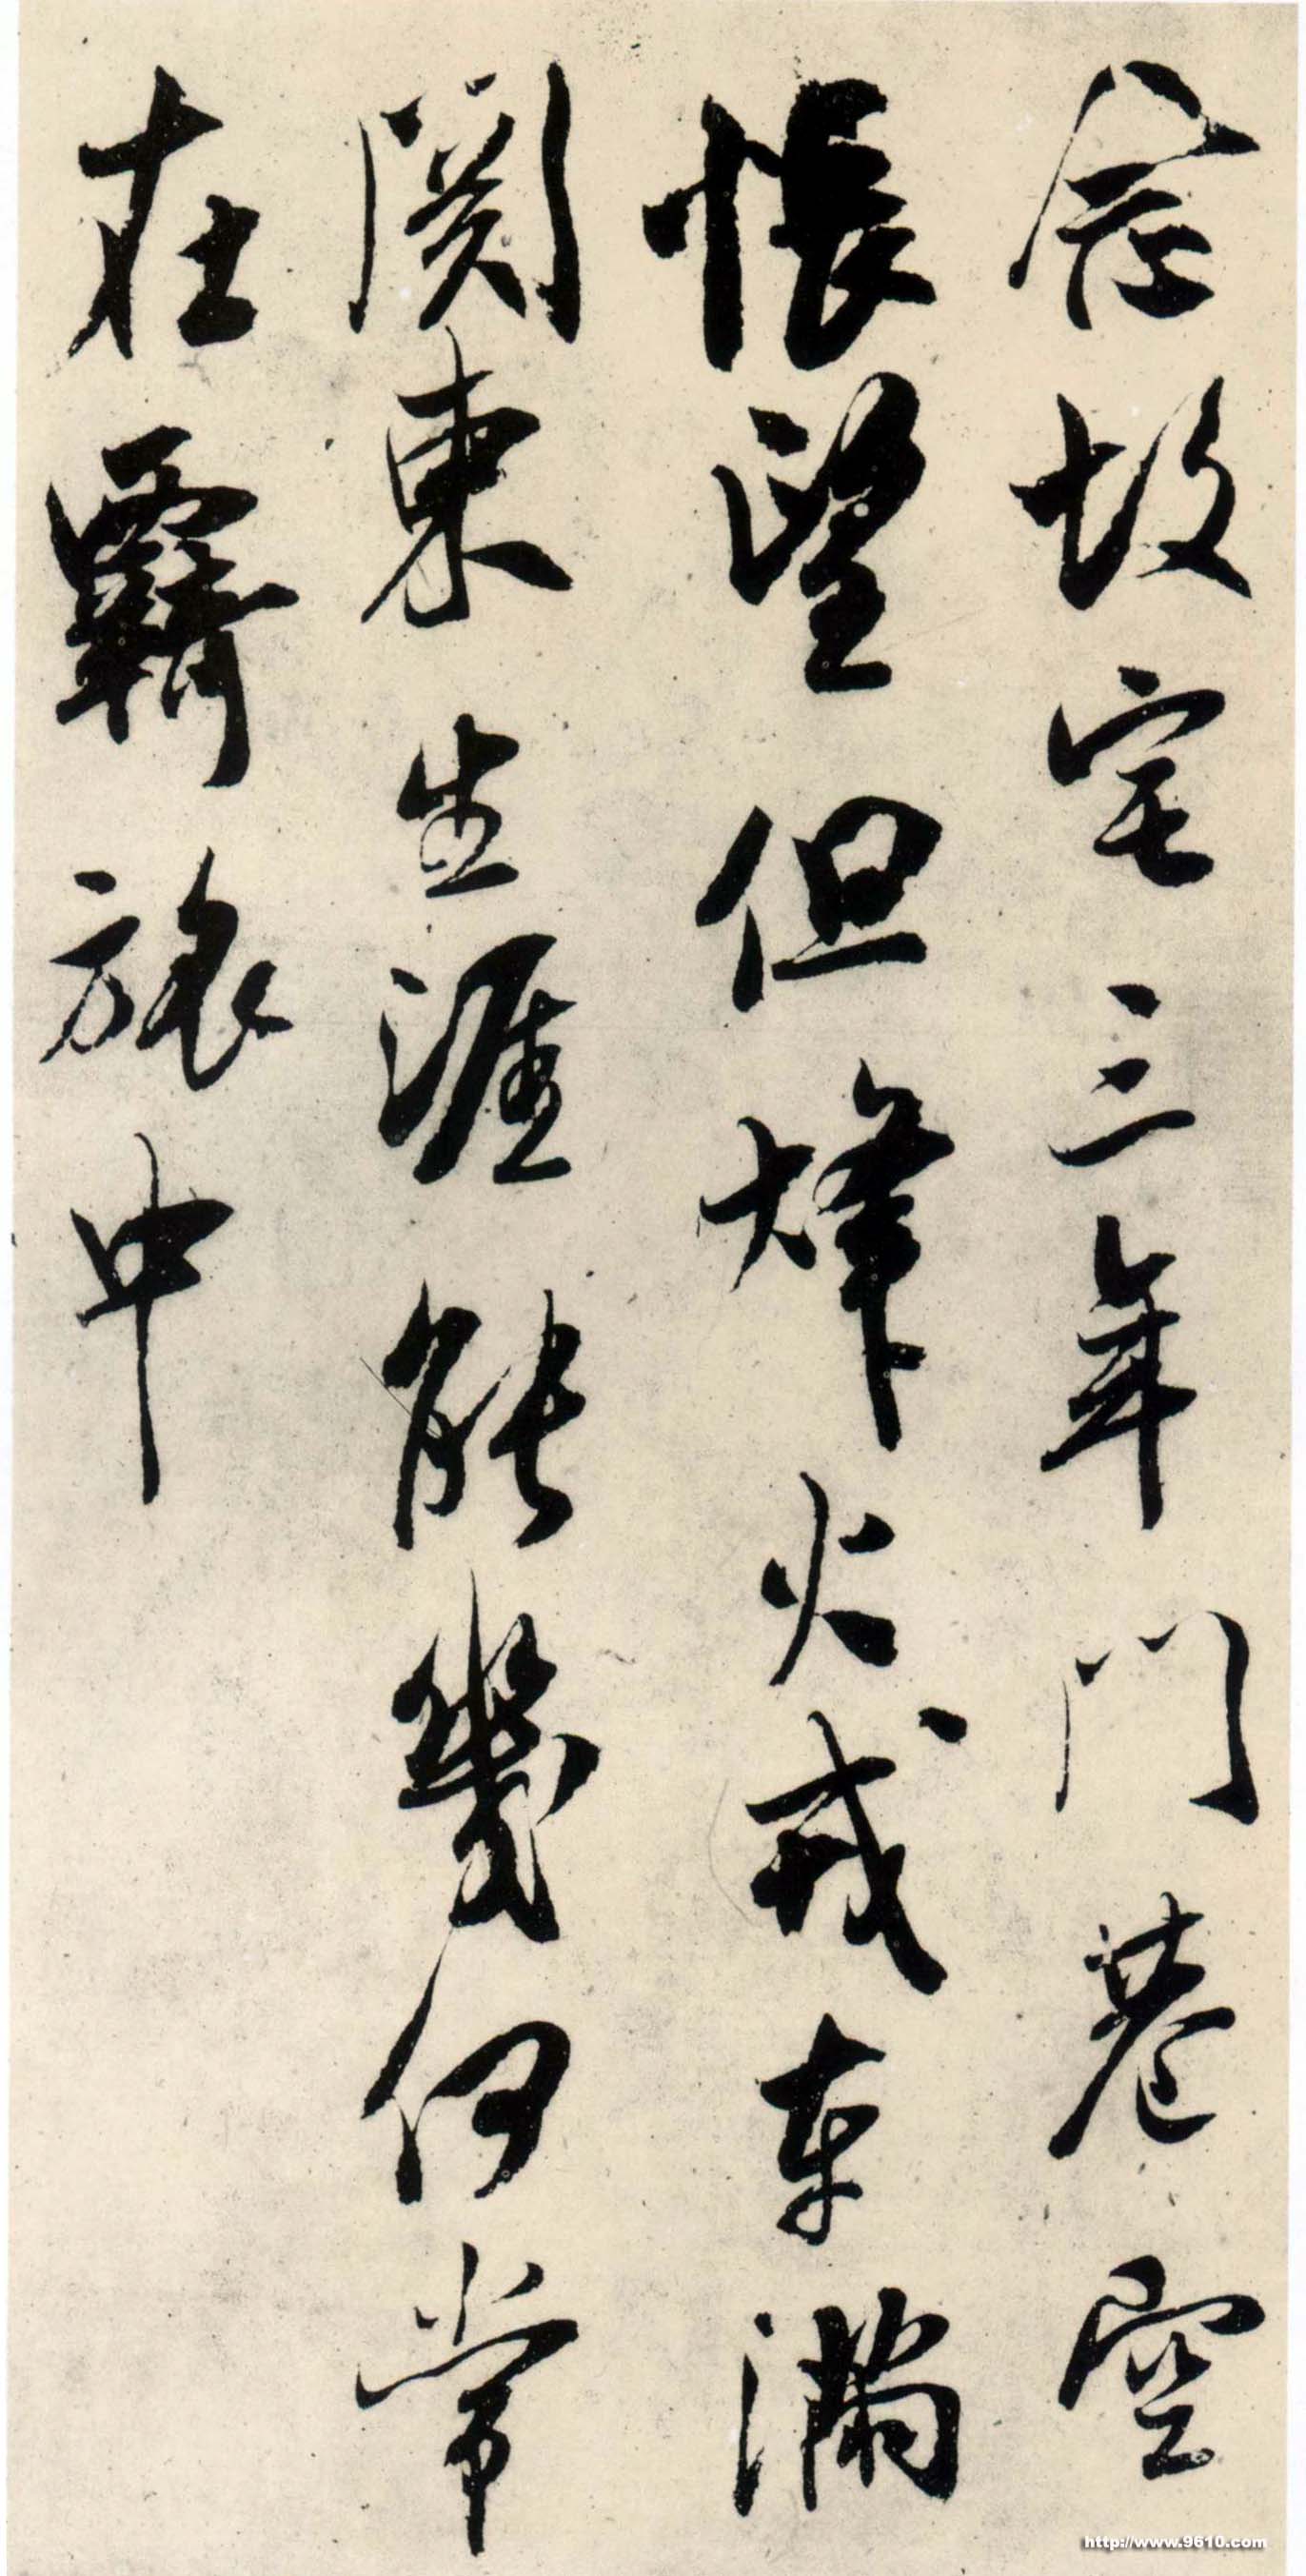 念故宅三年門巷空
悵望但烽火戎車滿
關東生涯能幾何常
在覊旅中
http://www.9610.com